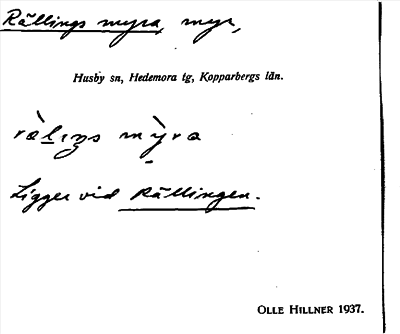 Rällings myra, myr,
Husby sn, Hedemora tg, Kopparbergs län.
rä̀lıŋs my̆̀ra
Ligger vid Rällingen.
OLLE HILLNER 1937.